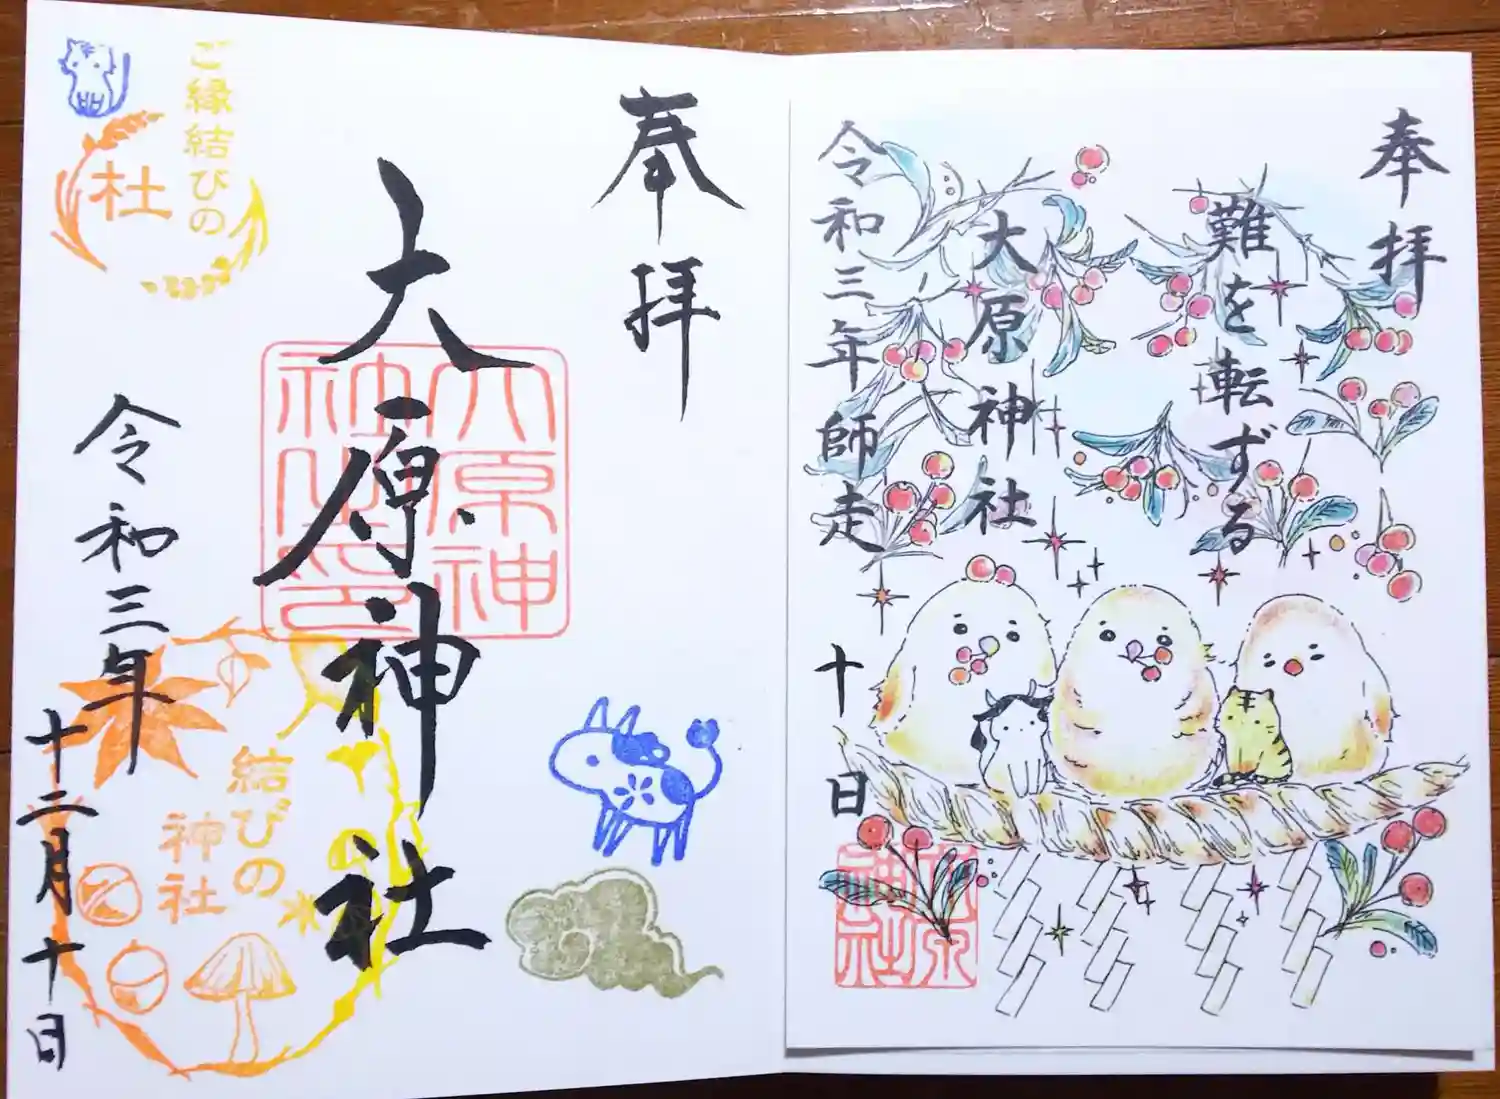 奉拝
難を転ずる
大原神社
令和三年師走
十日
奉拝
大原神社
大原神
社之印
令和三年
十二月十日
ご縁結びの
杜
結びの
神社